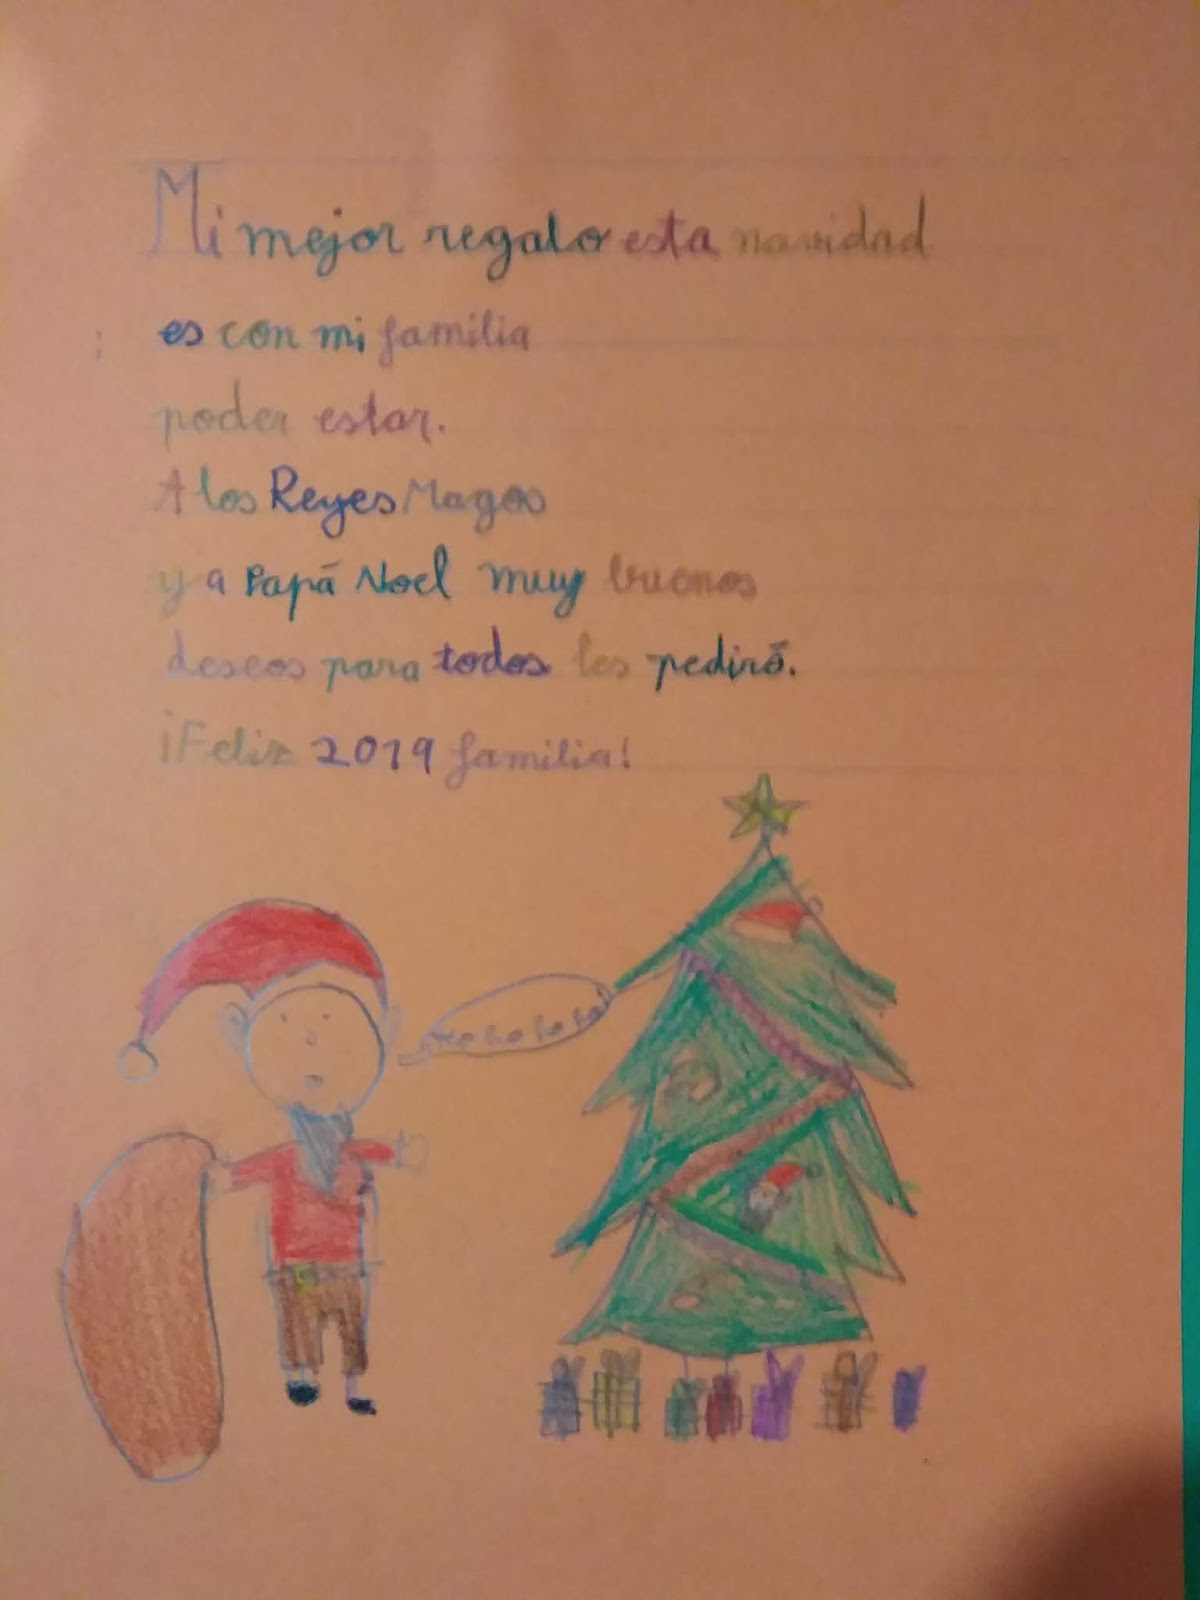 Mi mejor regalo esta navidad
es con mi familia
poder estar.
A los Reyes Magos
y a Papá Noel muy buenos
deseos para todos les pediré.
¡Feliz 2019 familia!
Ho ho ho ho!